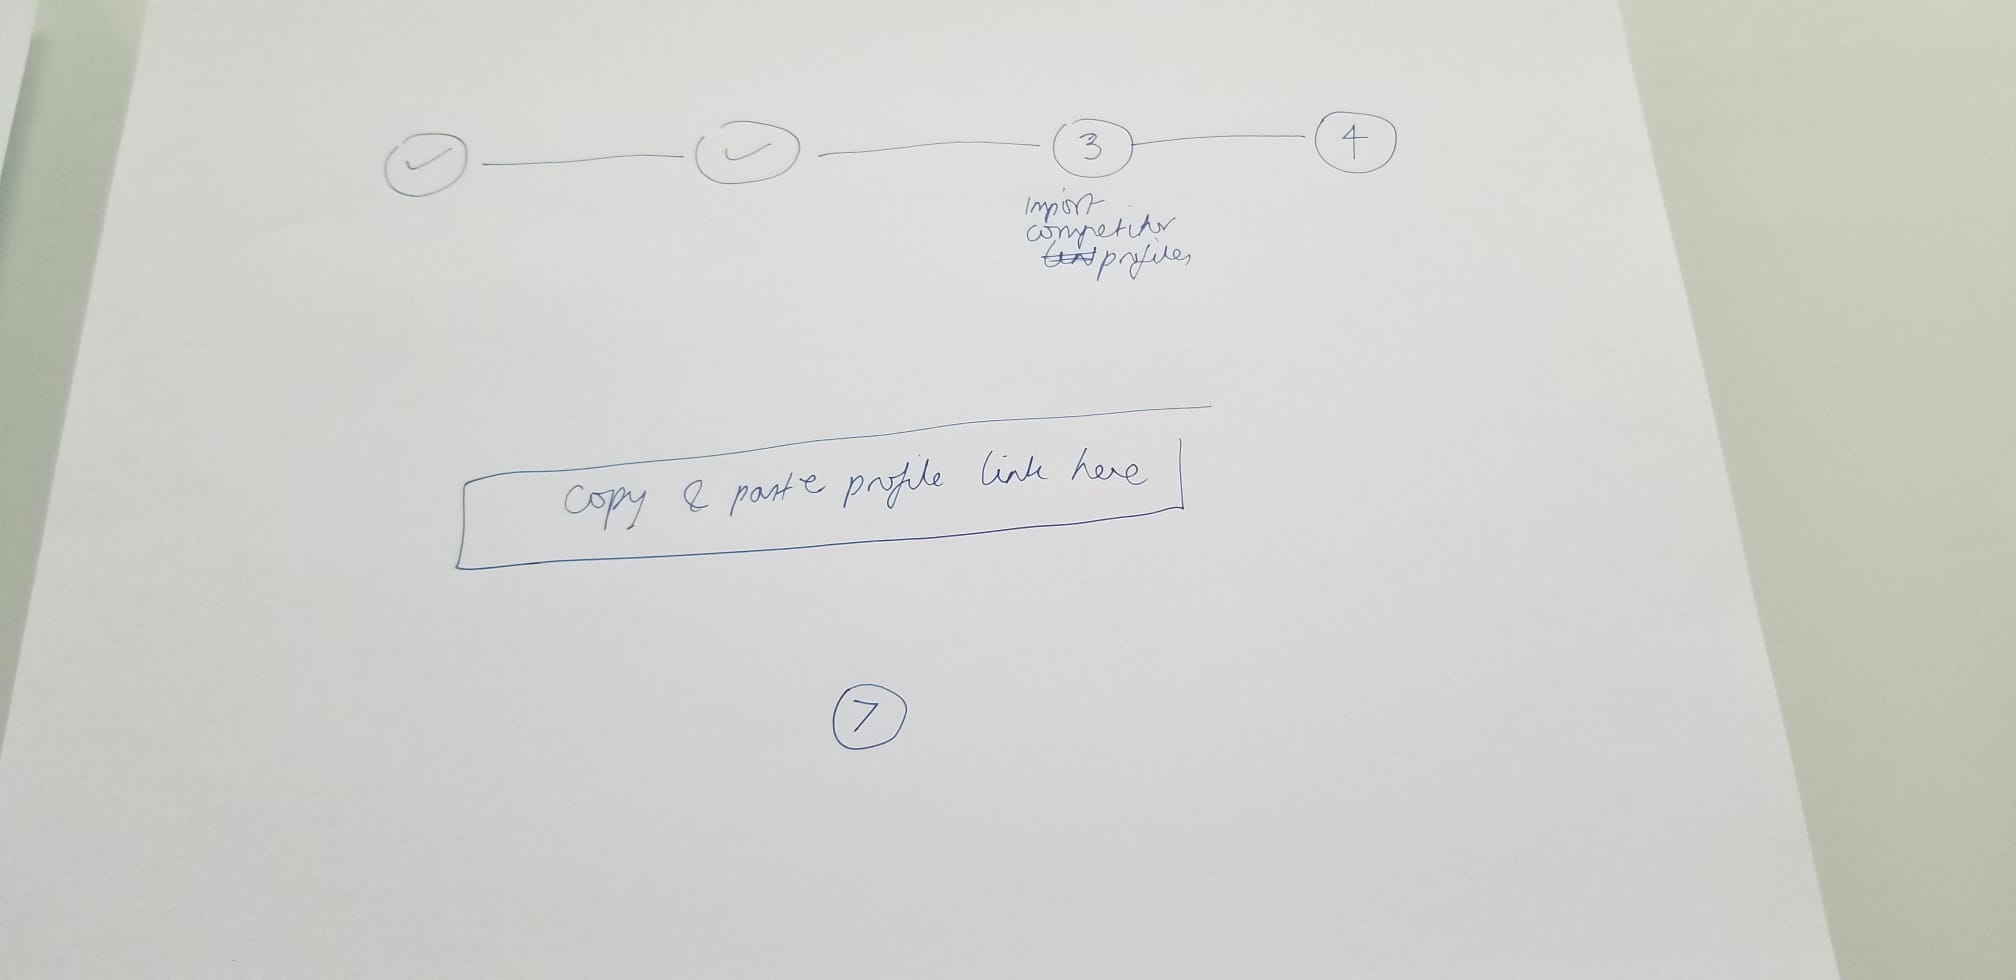 3
4
Import
competitor
profiles
Copy & paste profile link here
>